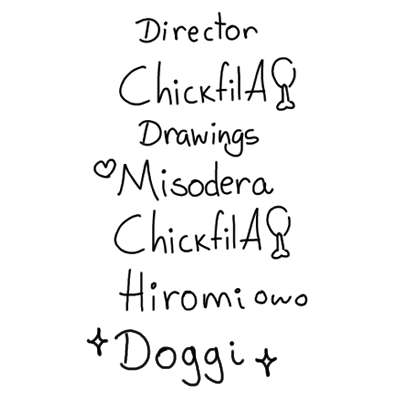 Director
ChickfilA
Drawings
Misodera
ChickfilA
Hiromi owo
Doggi